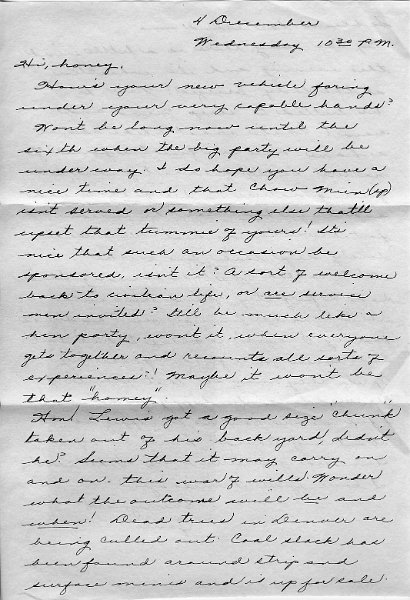 4 December
Wednesday 10:30 P.M.
Hi, honey,
How's your new vehicle faring
under your very capable hands?
Won't be long now until the
sixth when the big party will be
under way. I do hope you have a
nice time and that Chow Mien (sp)
isn't served or something else that'll
upset that tummie of yours! It's
nice that such an occasion be
sponsored, isn't it? A sort of welcome
back to civilian life, or are service
men invited? It'll be much like a
hen party, won't it, when everyone
gets together and recounts all sorts of
experiences?! Maybe it won't be
that "homey".
Hon! Lewis got a good size "chunk"
taken out of his back yard didn't
he? Seems that it may carry on
and on this war of wills. Wonder
what the outcome will be and
when! Dead trees in Denver are
being culled out. Coal slack has
been found around strip and
surface mines and is up for sale.